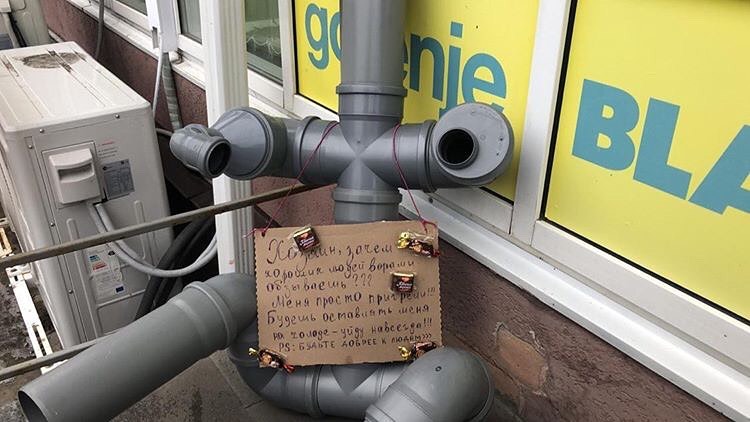 gorenje
BLA
Хозяин, зачем
хороших людей ворами
обзываешь???
Меня просто пригрели!!!
Будешь оставлять меня
на холоде - уйду навсегда!!!
PS: БУДЬТЕ ДОБРЕЕ К ЛЮДЯМ)))